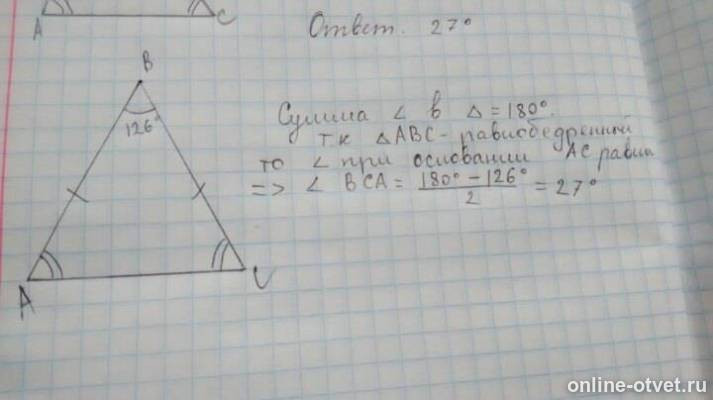 A C
Ответ. 27°
B
126°
Сумма ∠ в △ = 180°.
тк △ABC - равнобедренный
то ∠ при основании AC равны
=> ∠ BCA = 180° - 126° / 2 = 27°
A C
online-otvet.ru